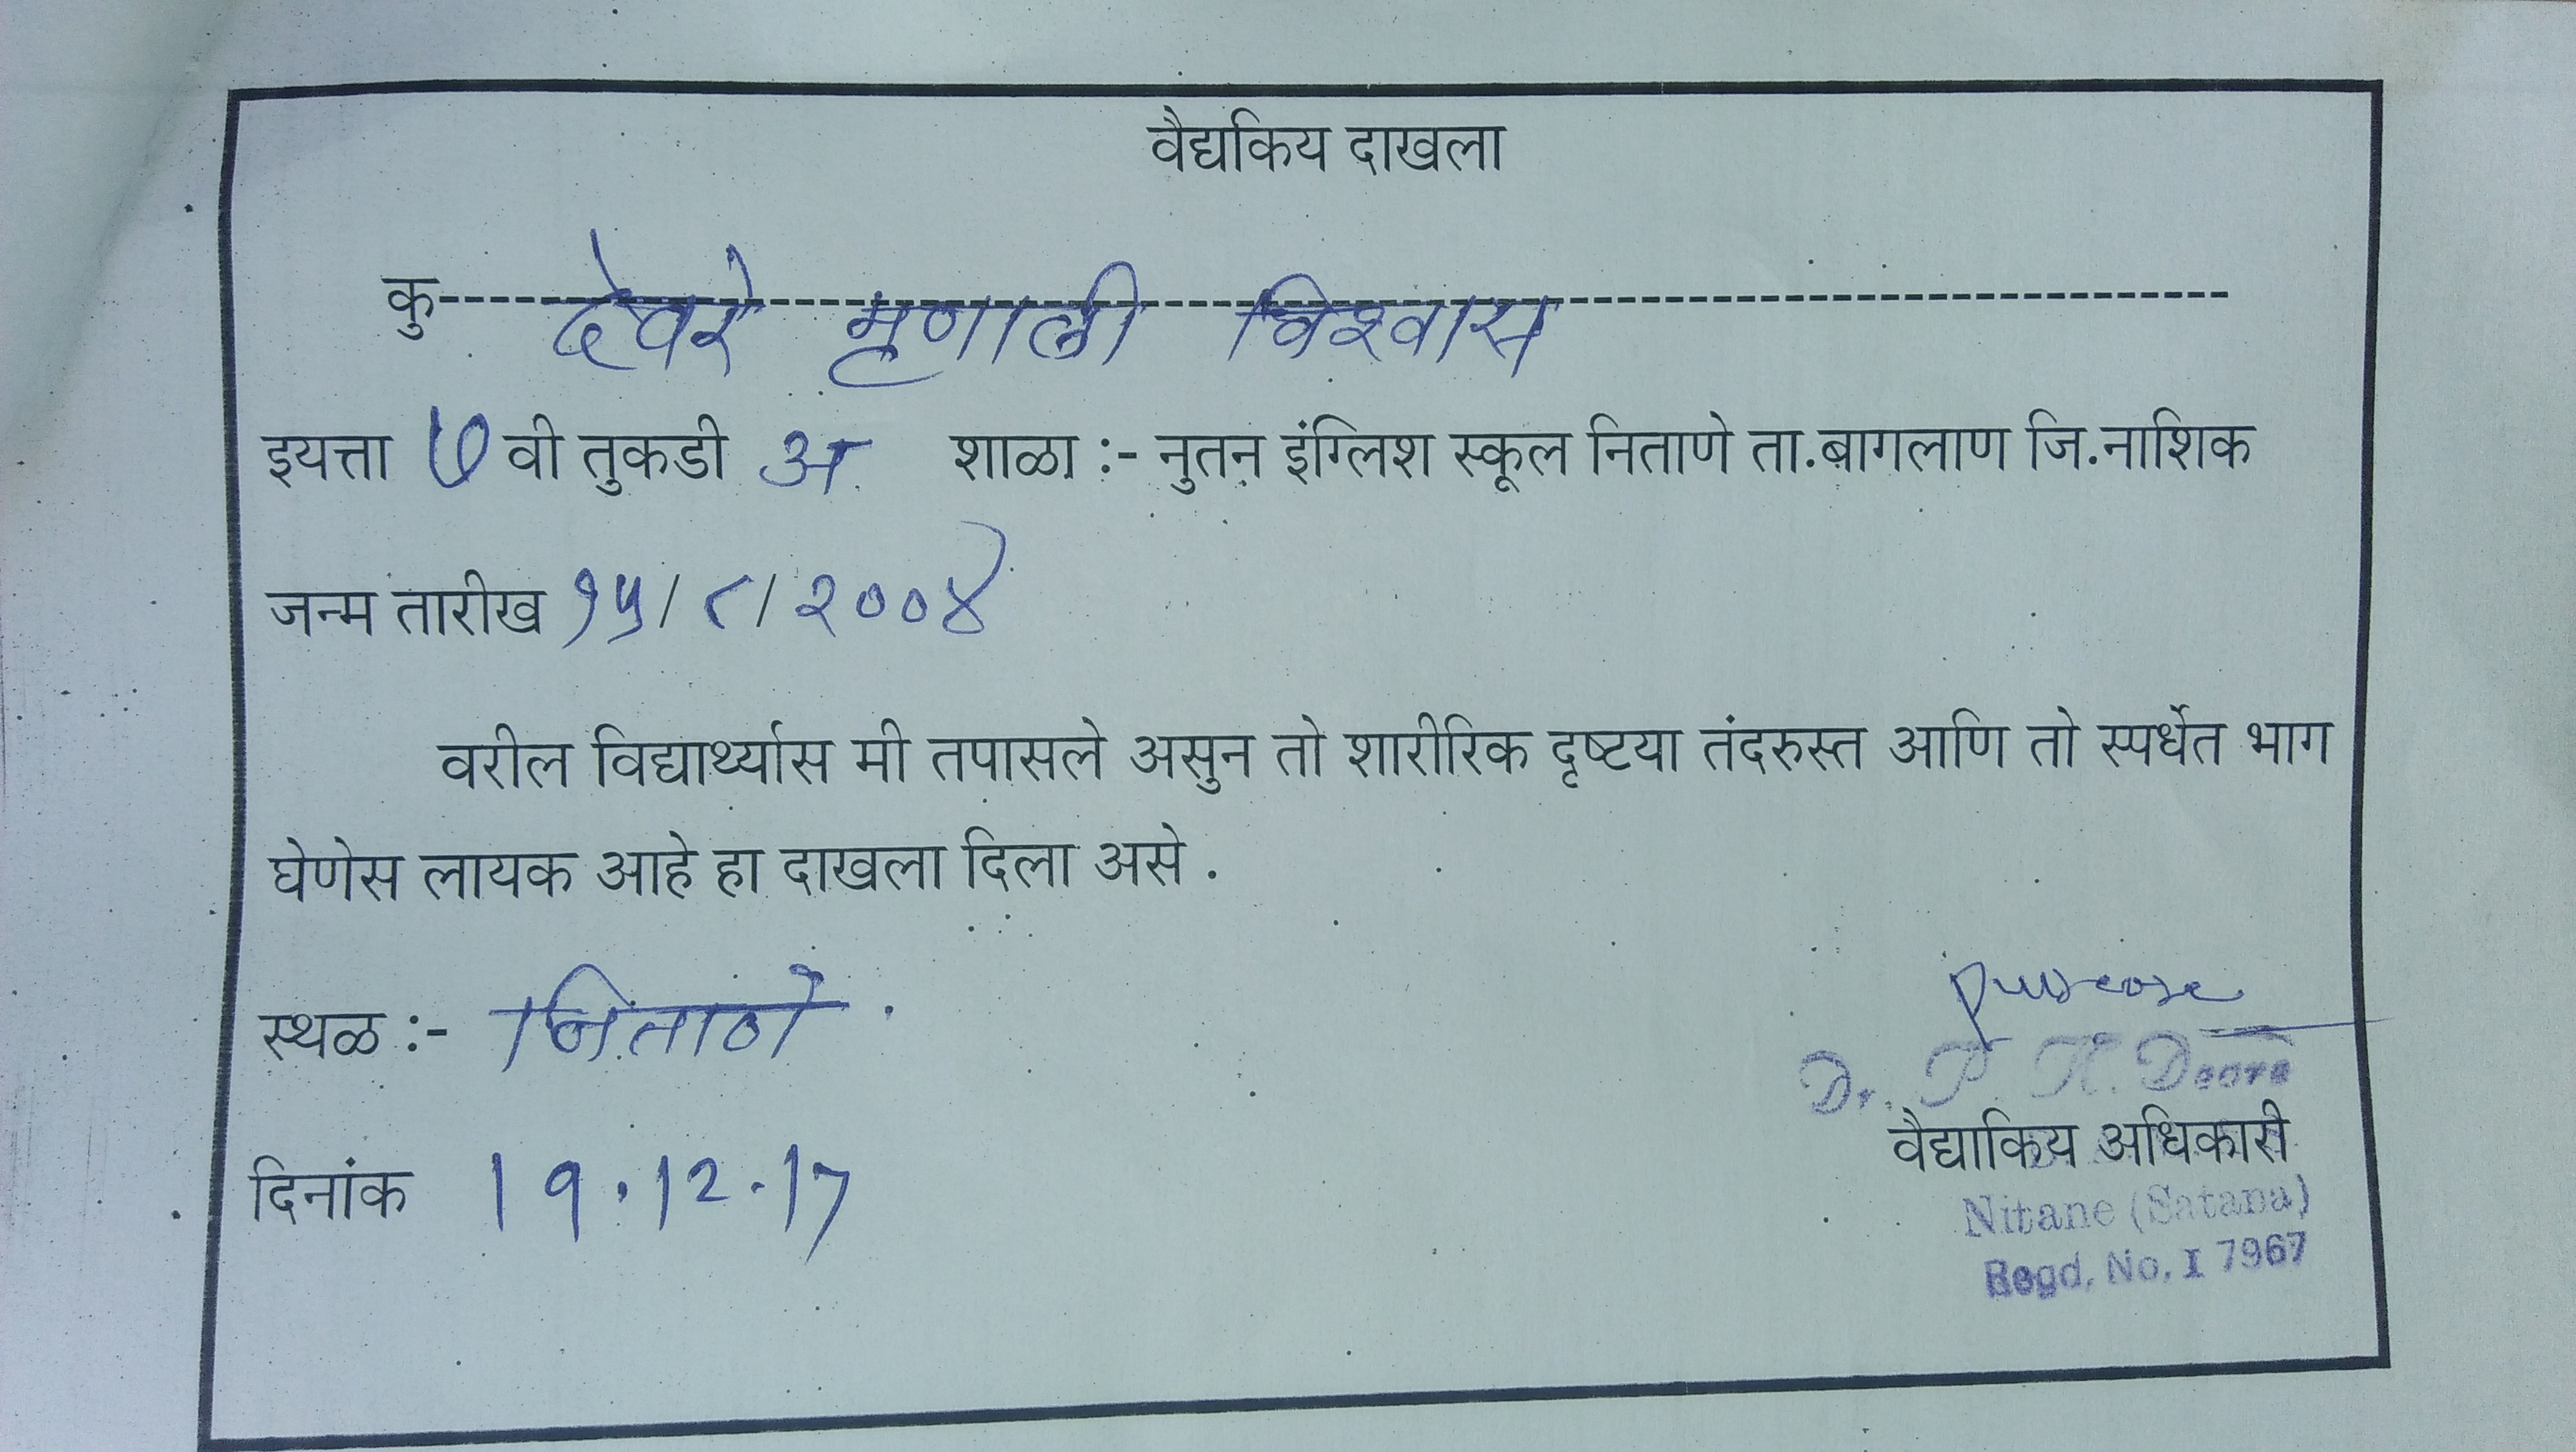 वैद्यकिय दाखला
कु देवरे मृणाली विश्वास
इयत्ता ७ वी तुकडी अ शाळा :- नुतन इंग्लिश स्कूल निताणे ता.बागलाण जि.नाशिक
जन्म तारीख १५/८/२००४
वरील विद्यार्थ्यास मी तपासले असुन तो शारीरिक दृष्टया तंदरुस्त आणि तो स्पर्धेत भाग
घेणेस लायक आहे हा दाखला दिला असे .
स्थळ :- निताणे .
Dr. P. K. Deore
वैद्याकिय अधिकारी
दिनांक 19.12.17
Nitane (Satana)
Regd. No. I 7967